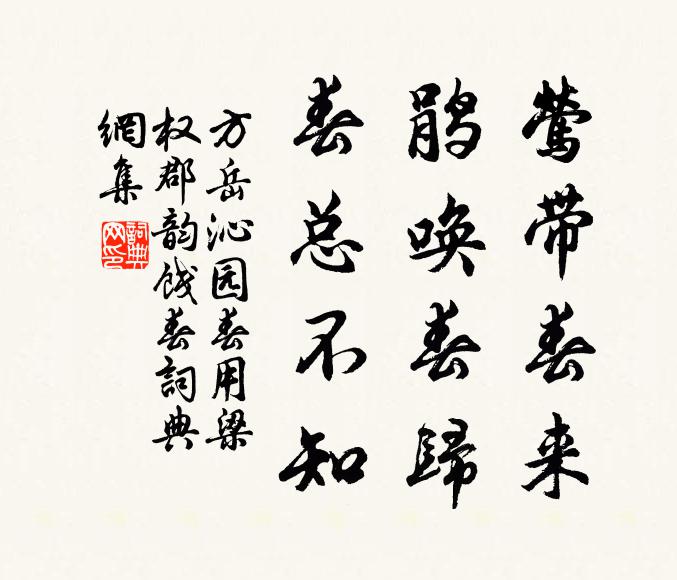 莺带春来
鹃唤春歸
春总不知
方岳沁园春用梁
权郡韵饯春詞典
網集
詞典网印